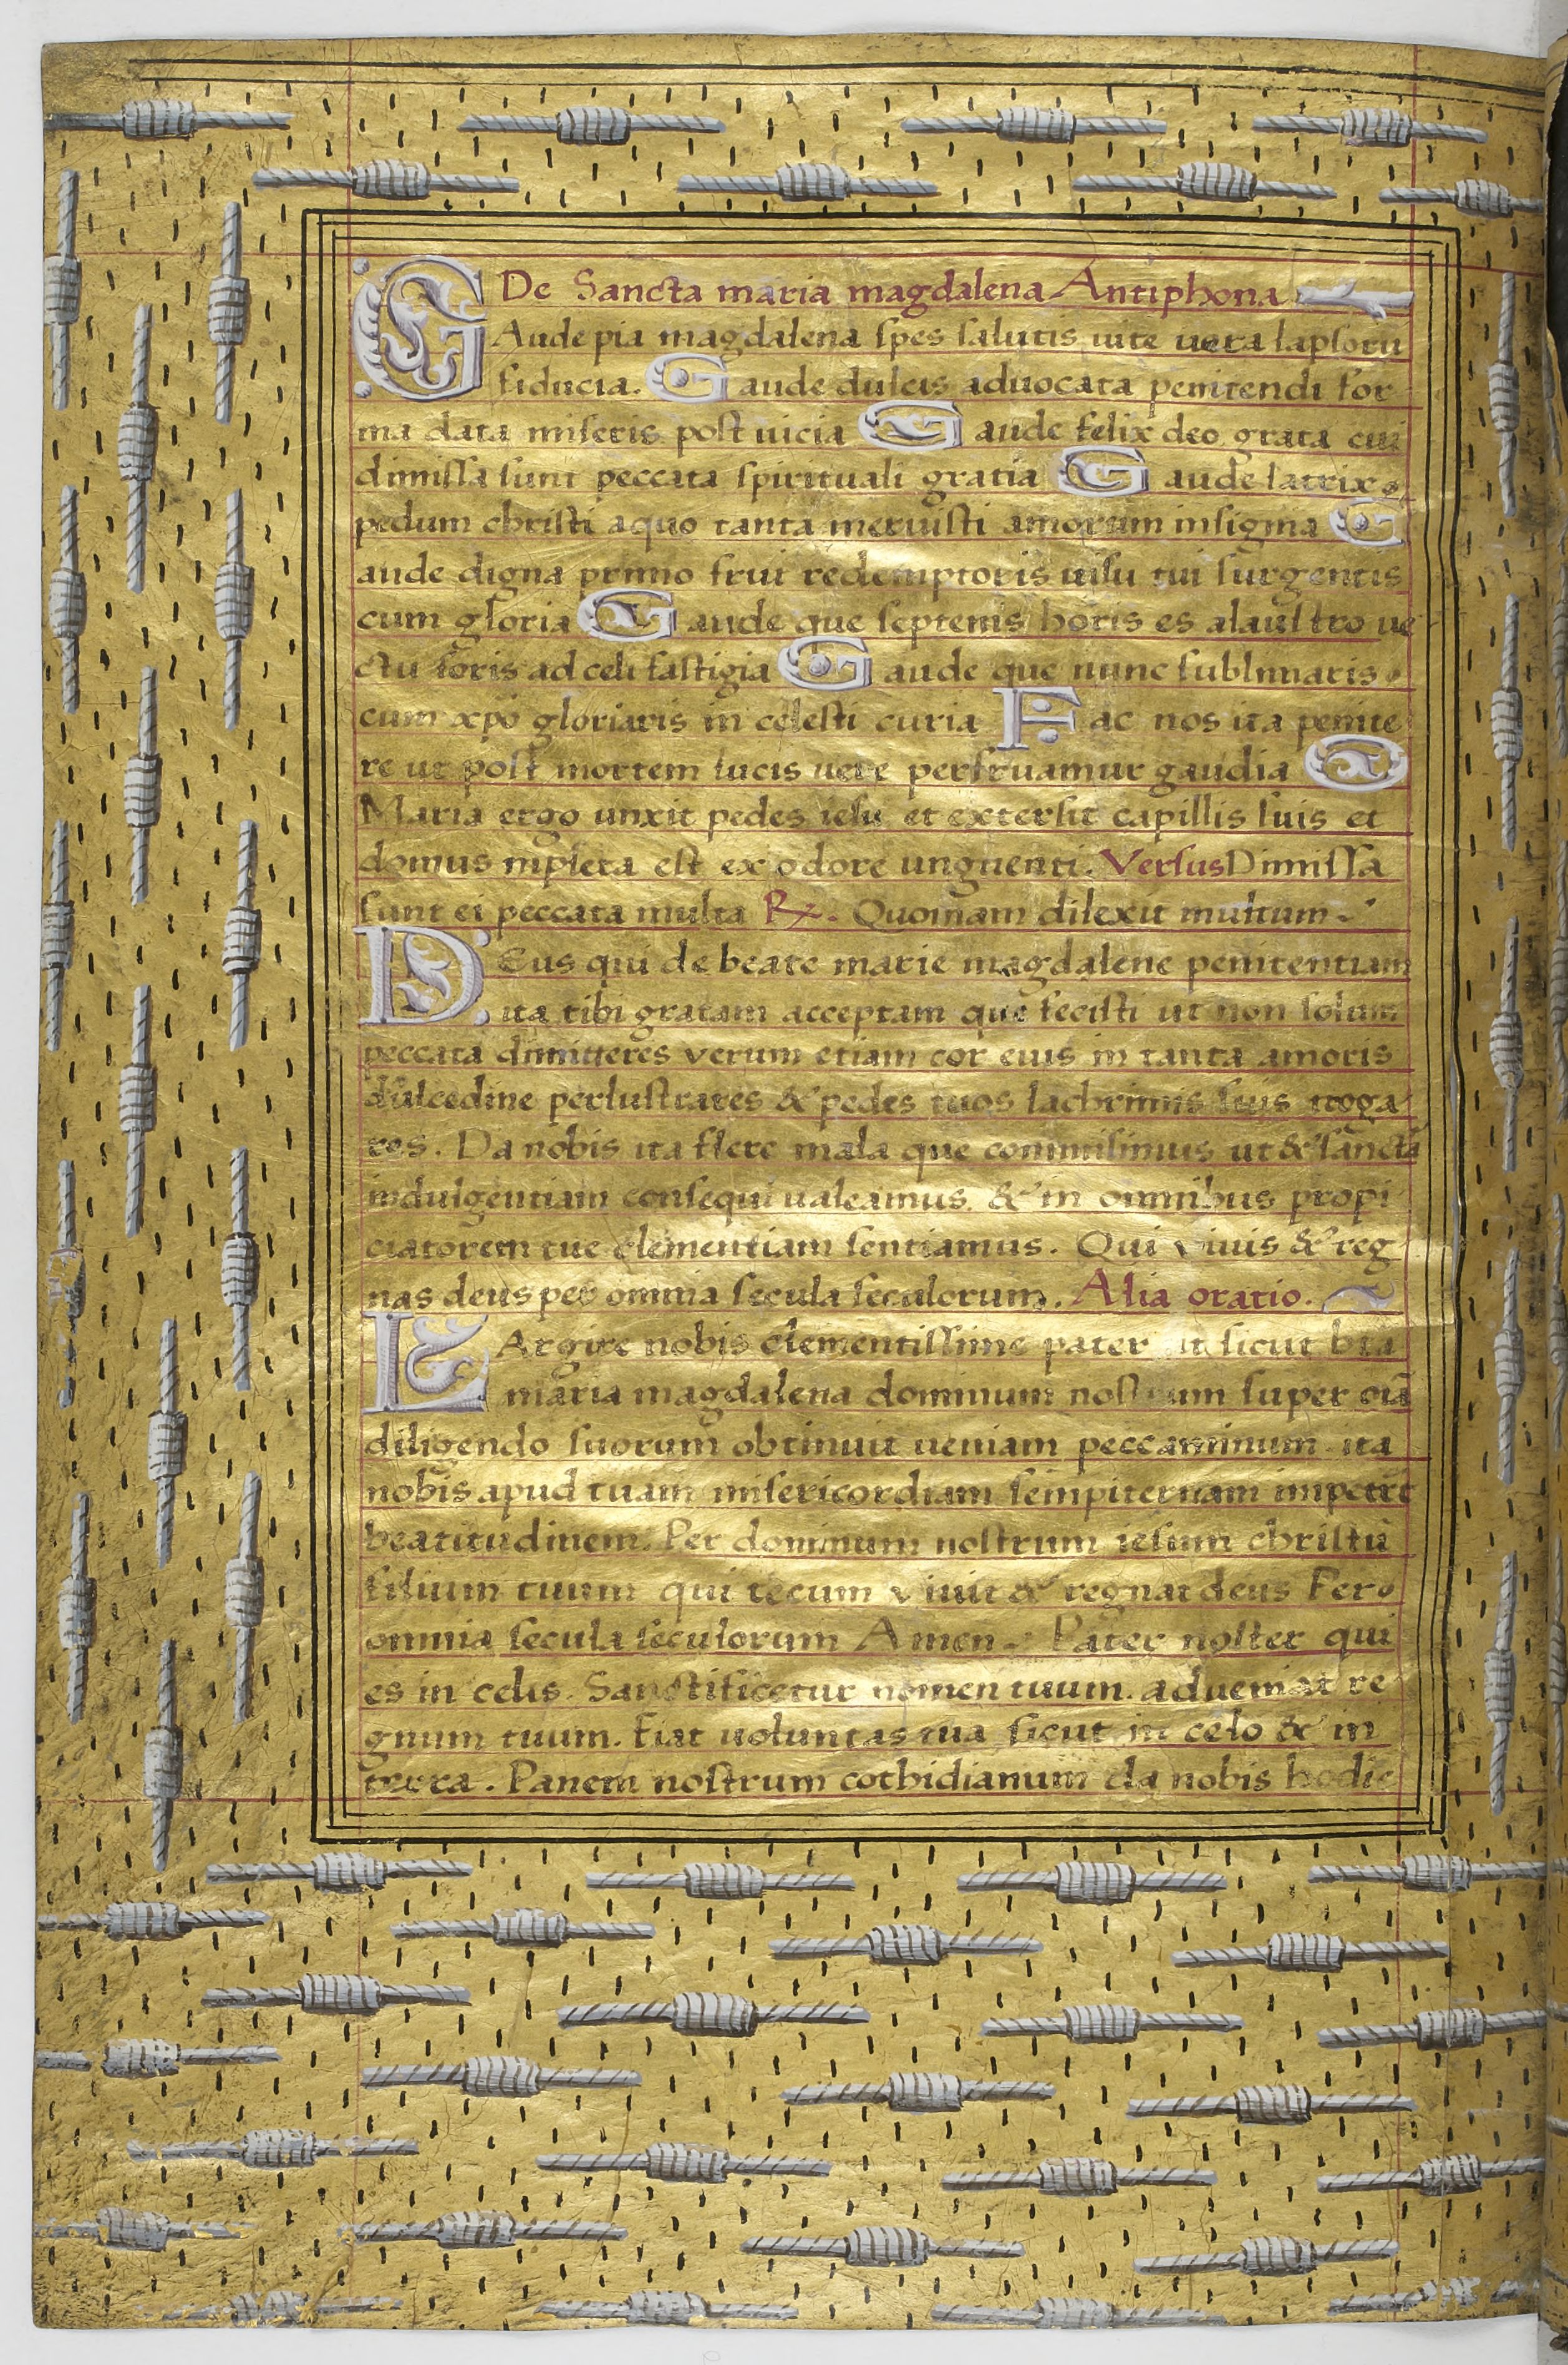 De Sancta maria magdalena Antiphona
GAude pia magdalena spes salutis uite uera lapsorū
fiducia. Gaude dulcis aduocata penitendi for
ma data miseris post uicia Gaude felix deo grata cui
dimissa sunt peccata spirituali gratia Gaude latrix
pedum christi a quo tanta meruisti amorum insignia G
aude digna primo frui redemptoris uisu tui surgentis
cum gloria Gaude que septenis horis es a laustro ue
ctu foris ad celi fastigia Gaude que nunc sublimaris
cum xpō gloriaris in celesti curia Fac nos ita penite
re ut post mortem lucis uere perfruamur gaudia
Maria ergo unxit pedes iesu et extersit capillis suis et
domus inpleta est ex odore unguenti. Versus Dimissa
sunt ei peccata multa R. Quoniam dilexit multum.
DEus qui de beate marie magdalene penitentiam
ita tibi gratam acceptam que fecisti ut non solum
peccata dimitteres verum etiam cor eius in tanta amoris
dulcedine perlustrares & pedes tuos lachrimis suis rroga
res. Da nobis ita flere mala que commisimus ut & sancta
indulgentiam consequi ualeamus. & in omnibus propi
ciatorem tue clementiam sentiamus. Qui viuis & reg
nas deus per omnia secula seculorum. Alia oratio.
LArgire nobis clementissime pater ut sicut bta
maria magdalena dominum nostrum super oīa
diligendo suorum obtinuit ueniam peccaminum ita
nobis apud tuam misericordiam sempiternam impetret
beatitudinem. Per dominum nostrum iesum christū
filium tuum qui tecum viuit & regnat deus Per
omnia secula seculorum Amen. Pater noster qui
es in celis. Sanctificetur nomen tuum. adueniat re
gnum tuum. Fiat uoluntas tua sicut in celo & in
terra. Panem nostrum cothidianum da nobis hodie